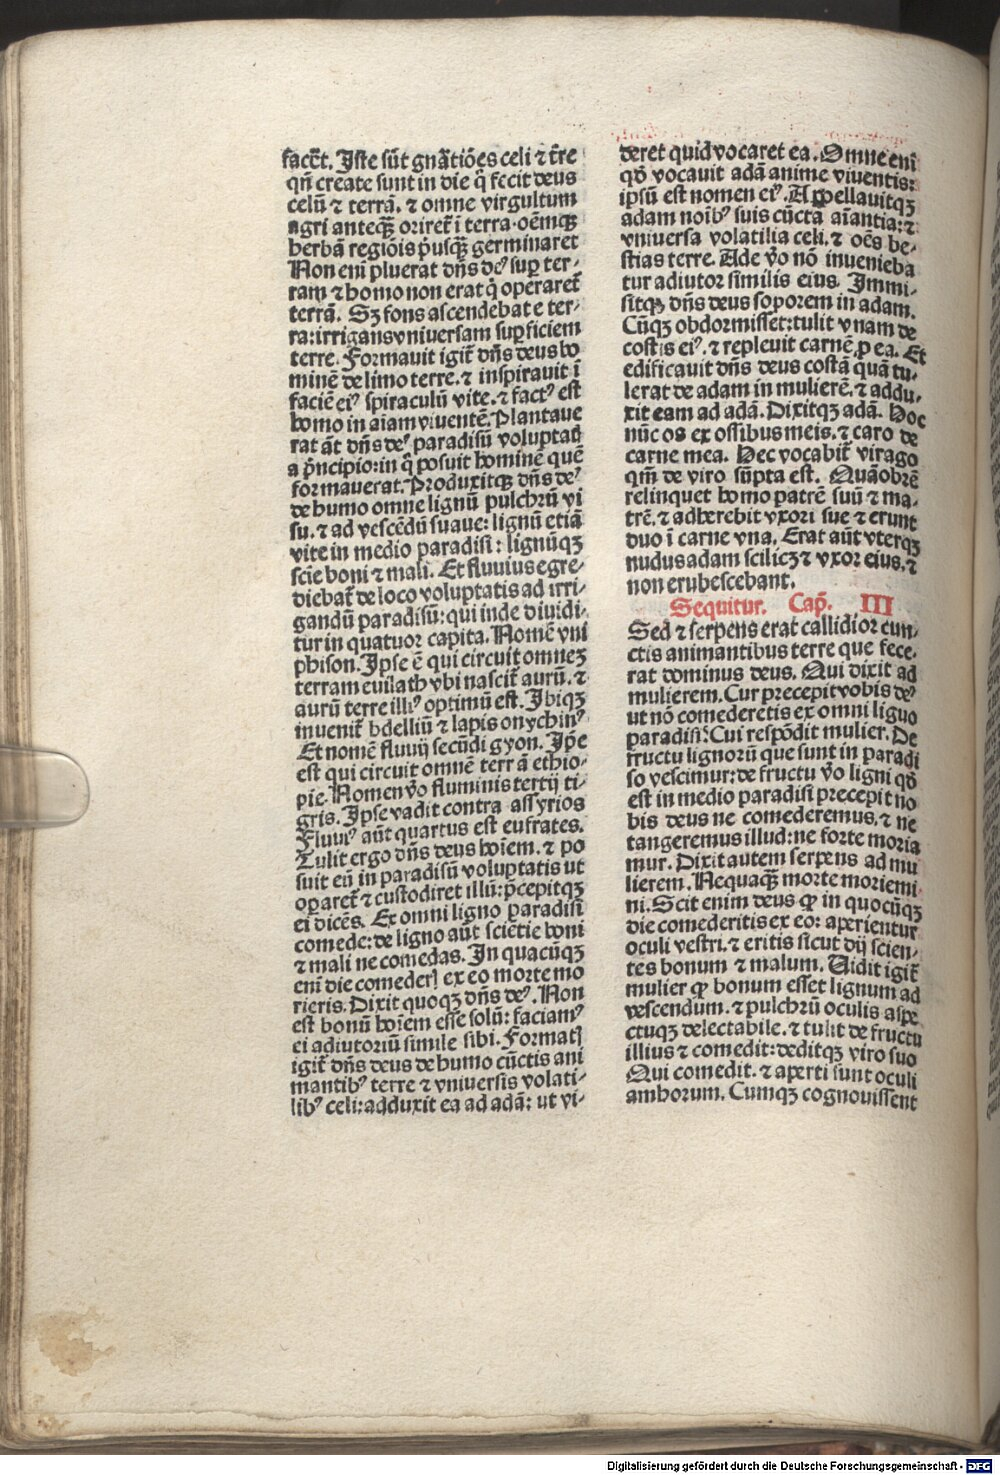 facēt. Iste sūt gnātiōes celi ⁊ tr̄re
qn̄ create sunt in die q̄ fecit deus
celū ⁊ terrā. ⁊ omne virgultum
agri anteqꝫ oriret̄ ī terra. oēmqꝫ
herbā regiōis p̄usqꝫ germinaret
Non eni pluerat dn̄s deꝰ suꝑ ter⸗
ram ⁊ homo non erat q̇ operaret̄
terrā. Sꝫ fons ascendebat e ter⸗
ra: irrigans vniversam suꝑficiem
terre. Formavit igit̄ dn̄s deus ho
minē de limo terre. ⁊ inspiravit ī
faciē eiꝰ spiraculū vite. ⁊ factꝰ est
homo in aīam viventē. Plantave
rat āt dn̄s deꝰ paradisū voluptatꝭ
a p̄ncipio: in q̄ posuit hominē quē
formaverat. Produxitqꝫ dn̄s deꝰ
de humo omne lignū pulchrū vi
su. ⁊ ad vescēdū suave: lignū etiā
vite in medio paradisi: lignūqꝫ
scīe boni ⁊ mali. Et fluvius egre⸗
diebat̄ de loco voluptatis ad irri⸗
gandū paradisū: qui inde dividi⸗
tur in quatuor capita. Nomē vni
phison. Ipse ē qui circuit omneꝫ
terram euilath vbi nascit̄ aurū. ⁊
aurū terre illiꝰ optimū est. Ibiqꝫ
invenit̄ bdelliū ⁊ lapis onychinꝰ
Et nomē fluvij secūdi gyon. Ip̄e
est qui circuit omnē terrā ethio⸗
pie. Nomen v̄o fluminis tertij ti⸗
gris. Ipse vadit contra assyrios
Fluviꝰ aūt quartus est eufrates.
Tulit ergo dn̄s deus hoīem. ⁊ po
suit eū in paradisū voluptatis ut
oꝑaret̄ ⁊ custodiret illū: p̄cepitqꝫ
ei dicēs. Ex omni ligno ꝑaradisi
comede: de ligno aūt sciētie boni
⁊ mali ne comedas. In quacūqꝫ
enī die comederꝭ ex eo morte mo
rieris. Dixit quoqꝫ dn̄s deꝰ. Non
est bonū hoīem esse solū: faciamꝰ
ei adiutoriū simile sibi. Formatꝭ
igit̄ dn̄s deus de humo cūctis ani
mantibꝰ terre ⁊ vniversis volati⸗
libꝰ celi: adduxit ea ad adā: ut vi⸗
deret quid vocaret ea. Omne enī
qd̄ vocavit adā anime viventis:
ipsū est nomen eiꝰ. Appellavitqꝫ
adam noībꝰ suis cūcta aīantia: ⁊
vniuersa volatilia celi. ⁊ oēs be⸗
stias terre. Ade v̄o nō inuenieba
tur adiutor similis eius. Immi⸗
sitqꝫ dn̄s deus soporem in adam.
Cūqꝫ obdormisset: tulit vnam de
costis eiꝰ. ⁊ replevit carnē ꝓ ea. Et
edificauit dn̄s deus costā quā tu⸗
lerat de adam in mulierē. ⁊ addu⸗
xit eam ad adā. Dixitqꝫ adā. Hoc
nūc os ex ossibus meis. ⁊ caro de
carne mea. Hec vocabit̄ virago
qm̄ de viro sūpta est. Quāobrē
relinquet homo patrē suū ⁊ ma⸗
trē. ⁊ adherebit vxori sue ⁊ erunt
duo ī carne vna. Erat aūt vterqꝫ
nudus adam scilicꝫ ⁊ vxor eius. ⁊
non erubescebant.
Sequitur. Cap̄. III
Sed ⁊ serpens erat callidior cun⸗
ctis animantibus terre que fece⸗
rat dominus deus. Qui dixit ad
mulierem. Cur precepit vobis deꝰ
ut nō comederetis ex omni liguo
paradisi? Cui respōdit mulier. De
fructu lignorū que sunt in paradi
so vescimur: de fructu v̄o ligni qd̄
est in medio paradisi precepit no
bis deus ne comederemus. ⁊ ne
tangeremus illud: ne forte moria
mur. Dixit autem serpens ad mu
lierem. Nequaqꝫ morte moriemi
ni. Scit enim deus ꝙ in quocūqꝫ
die comederitis ex eo: aperientur
oculi vestri. ⁊ eritis sicut dij scien⸗
tes bonum ⁊ malum. Vidit igit̄
mulier ꝙ bonum esset lignum ad
vescendum. ⁊ pulchrū oculis aspe
ctuqꝫ delectabile. ⁊ tulit de fructu
illius ⁊ comedit: deditqꝫ viro suo
Qui comedit. ⁊ aperti sunt oculi
amborum. Cumqꝫ cognovissent
Digitalisierung gefördert durch die Deutsche Forschungsgemeinschaft - DFG